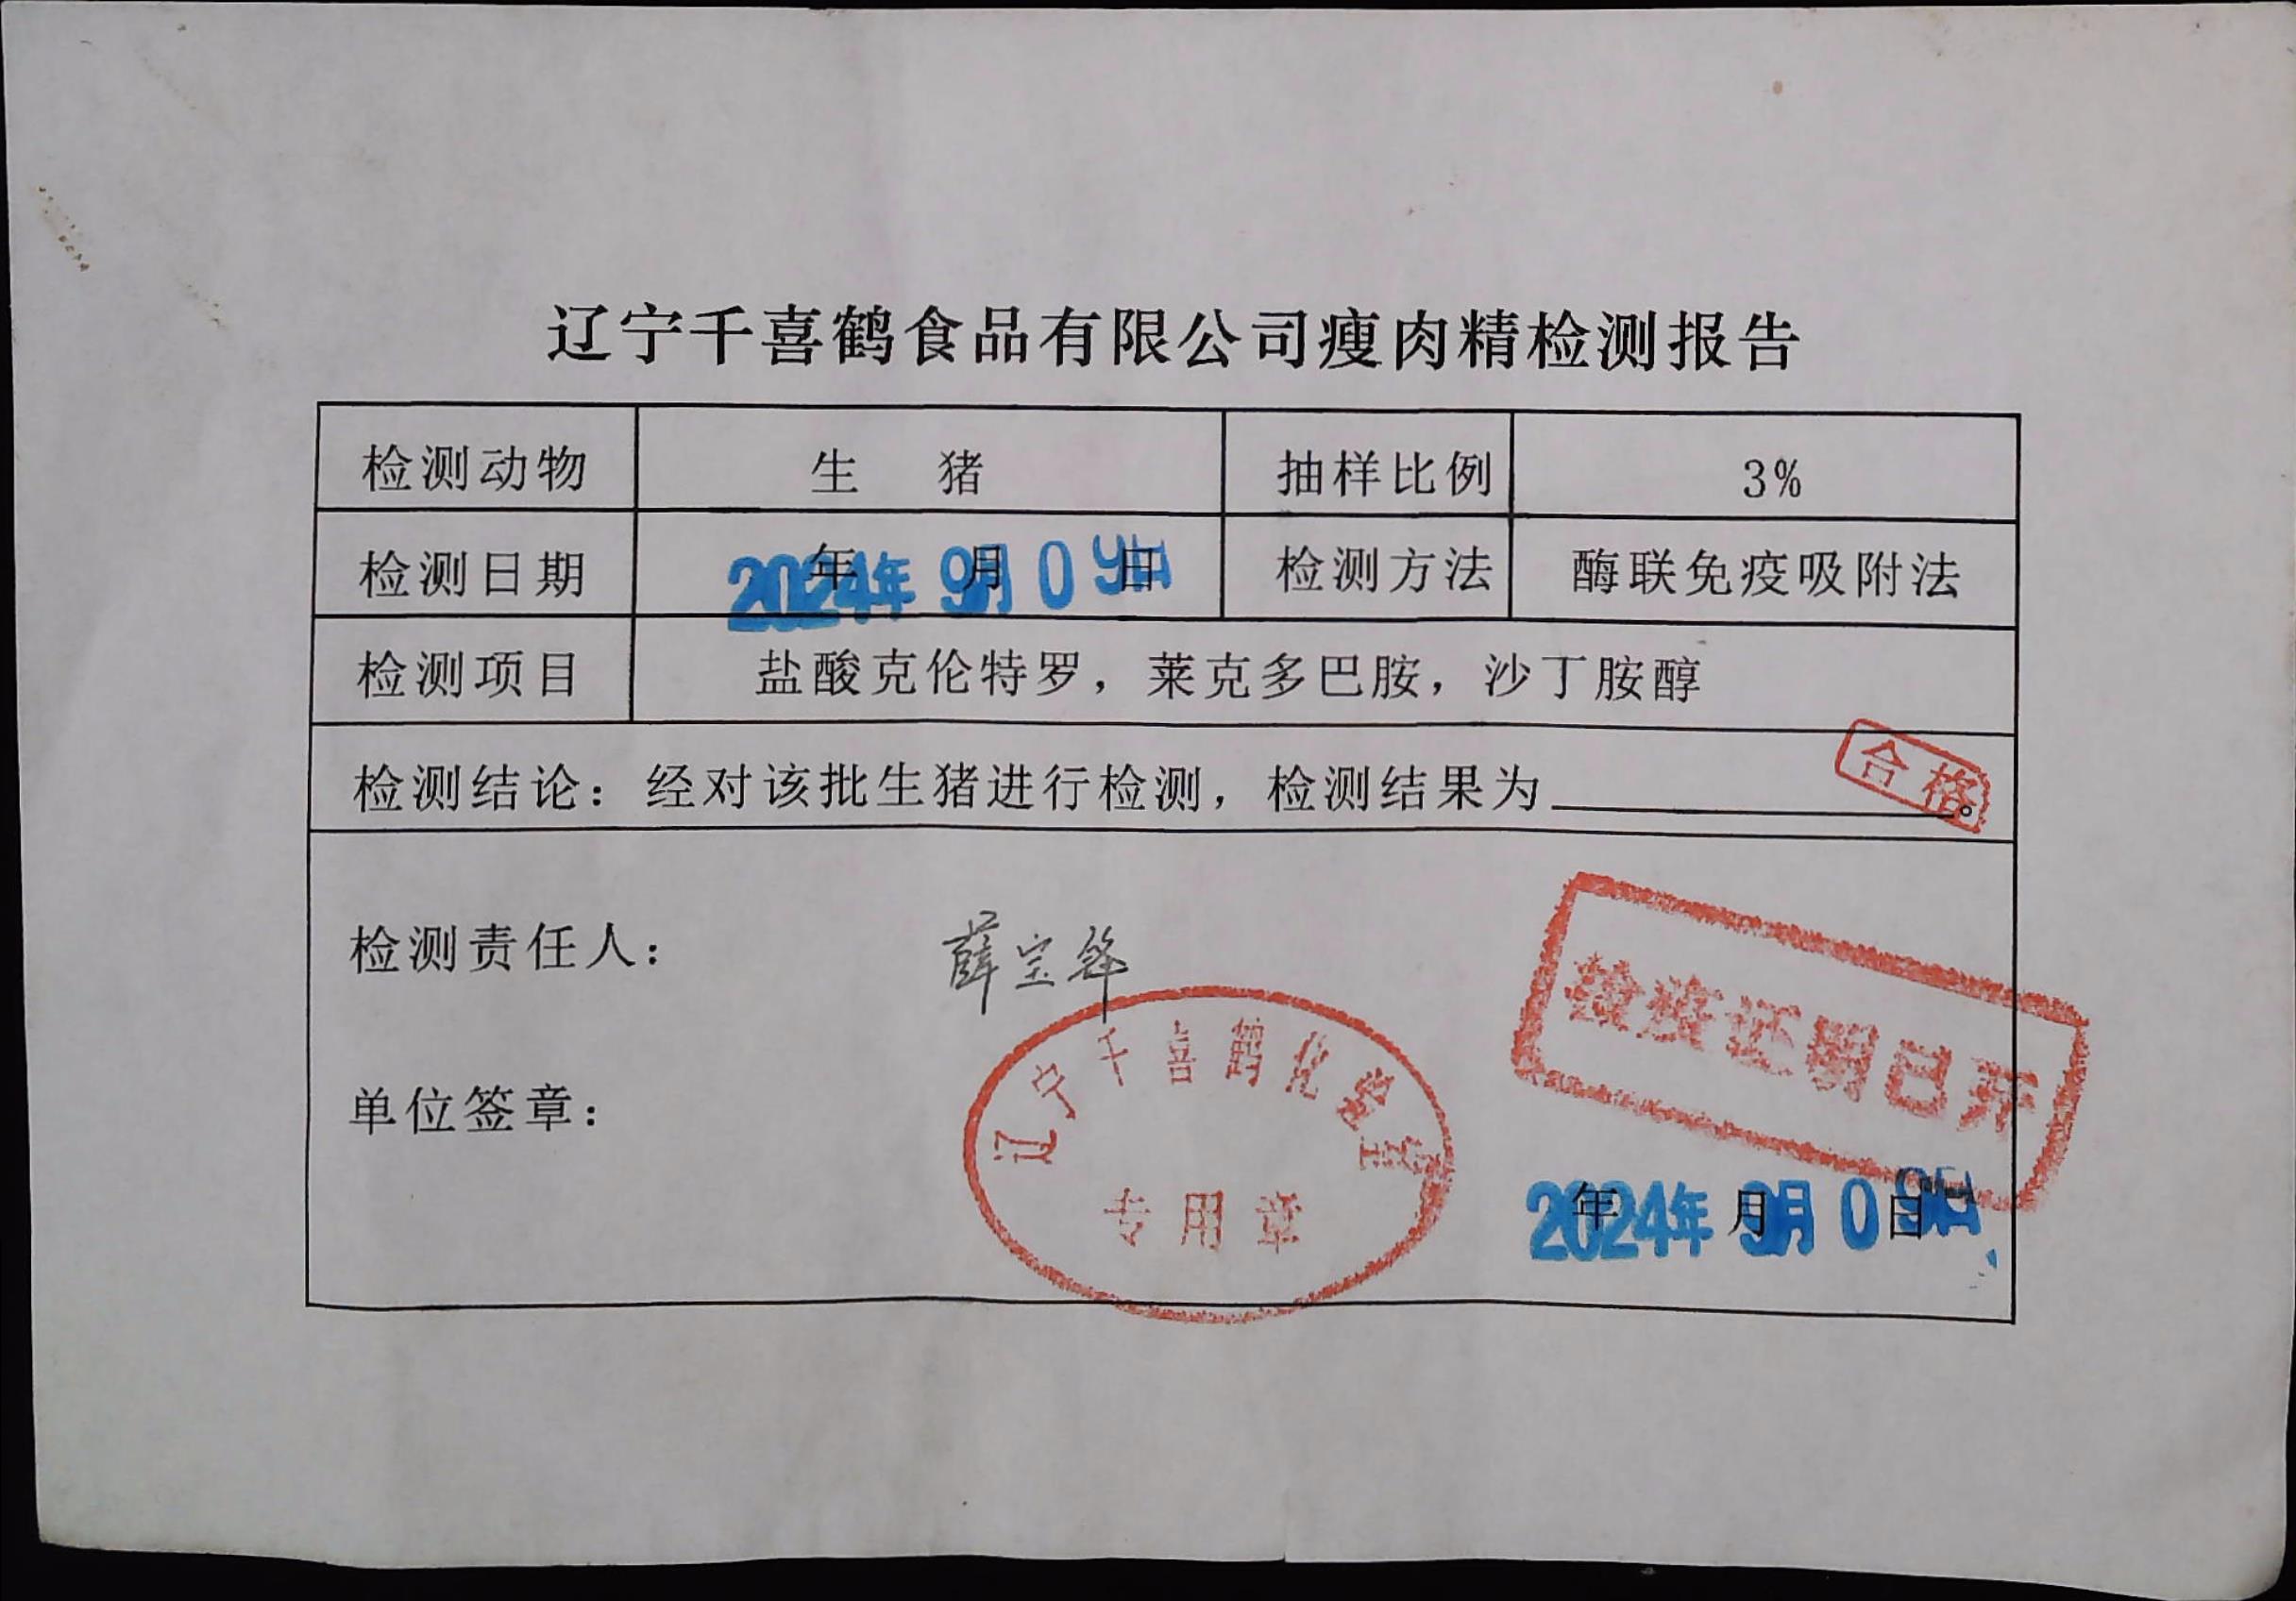 辽宁千喜鹤食品有限公司瘦肉精检测报告
检测动物 生 猪 抽样比例 3%
检测日期 2024年 9月 0 年 月 日 检测方法 酶联免疫吸附法
检测项目 盐酸克伦特罗，莱克多巴胺，沙丁胺醇
检测结论：经对该批生猪进行检测，检测结果为 合格。
检测责任人： 薛宝
检疫证明已开
单位签章：
辽宁千喜鹤化验室
专用章
2024年 9月 0 年 月 日